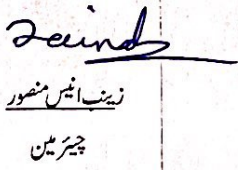 Zainab
زینب انیس منصور
چیئرمین